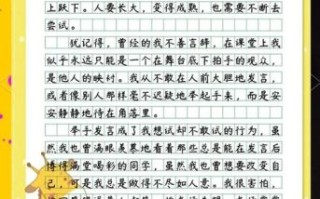 上跃下。人要长大，变得成熟，也需要不断去
尝试。
犹记得，曾经的我不善言辞，在课堂上我
似乎永远只能是一个在舞台底下拍手的观众，
是他人的映衬。我从不敢在人前大胆地发言，
或者像别人那样毫不迟疑地举起手来，而是安
安静静地待在角落里。
举手发言成了我想试却不敢试的行为，虽
然我也曾满眼羡慕地看着那些总是能在发言后
博得满堂喝彩的同学，虽然我也曾想要改变自
己，可是我总是做得不尽如人意。我很害怕，